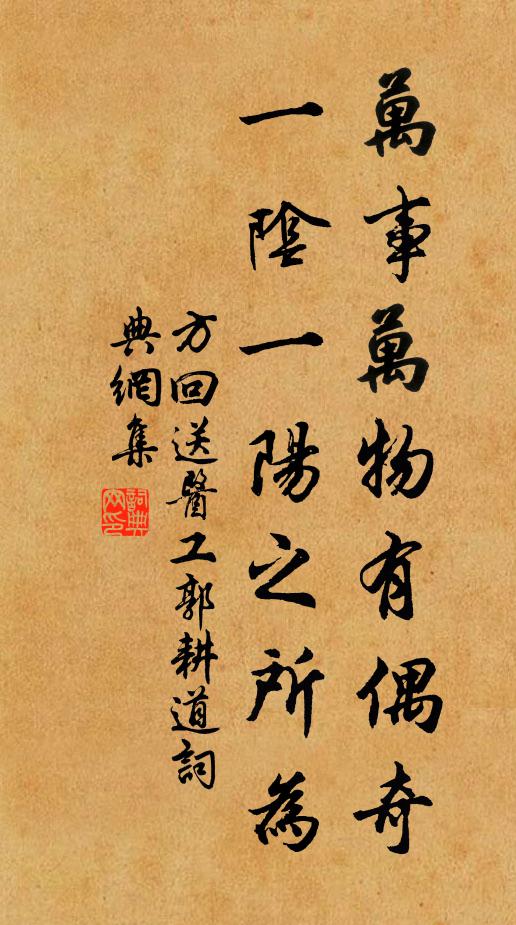 萬事萬物有偶奇
一陰一陽之所為
方回送醫工郭耕道詞
典網集
詞典網印